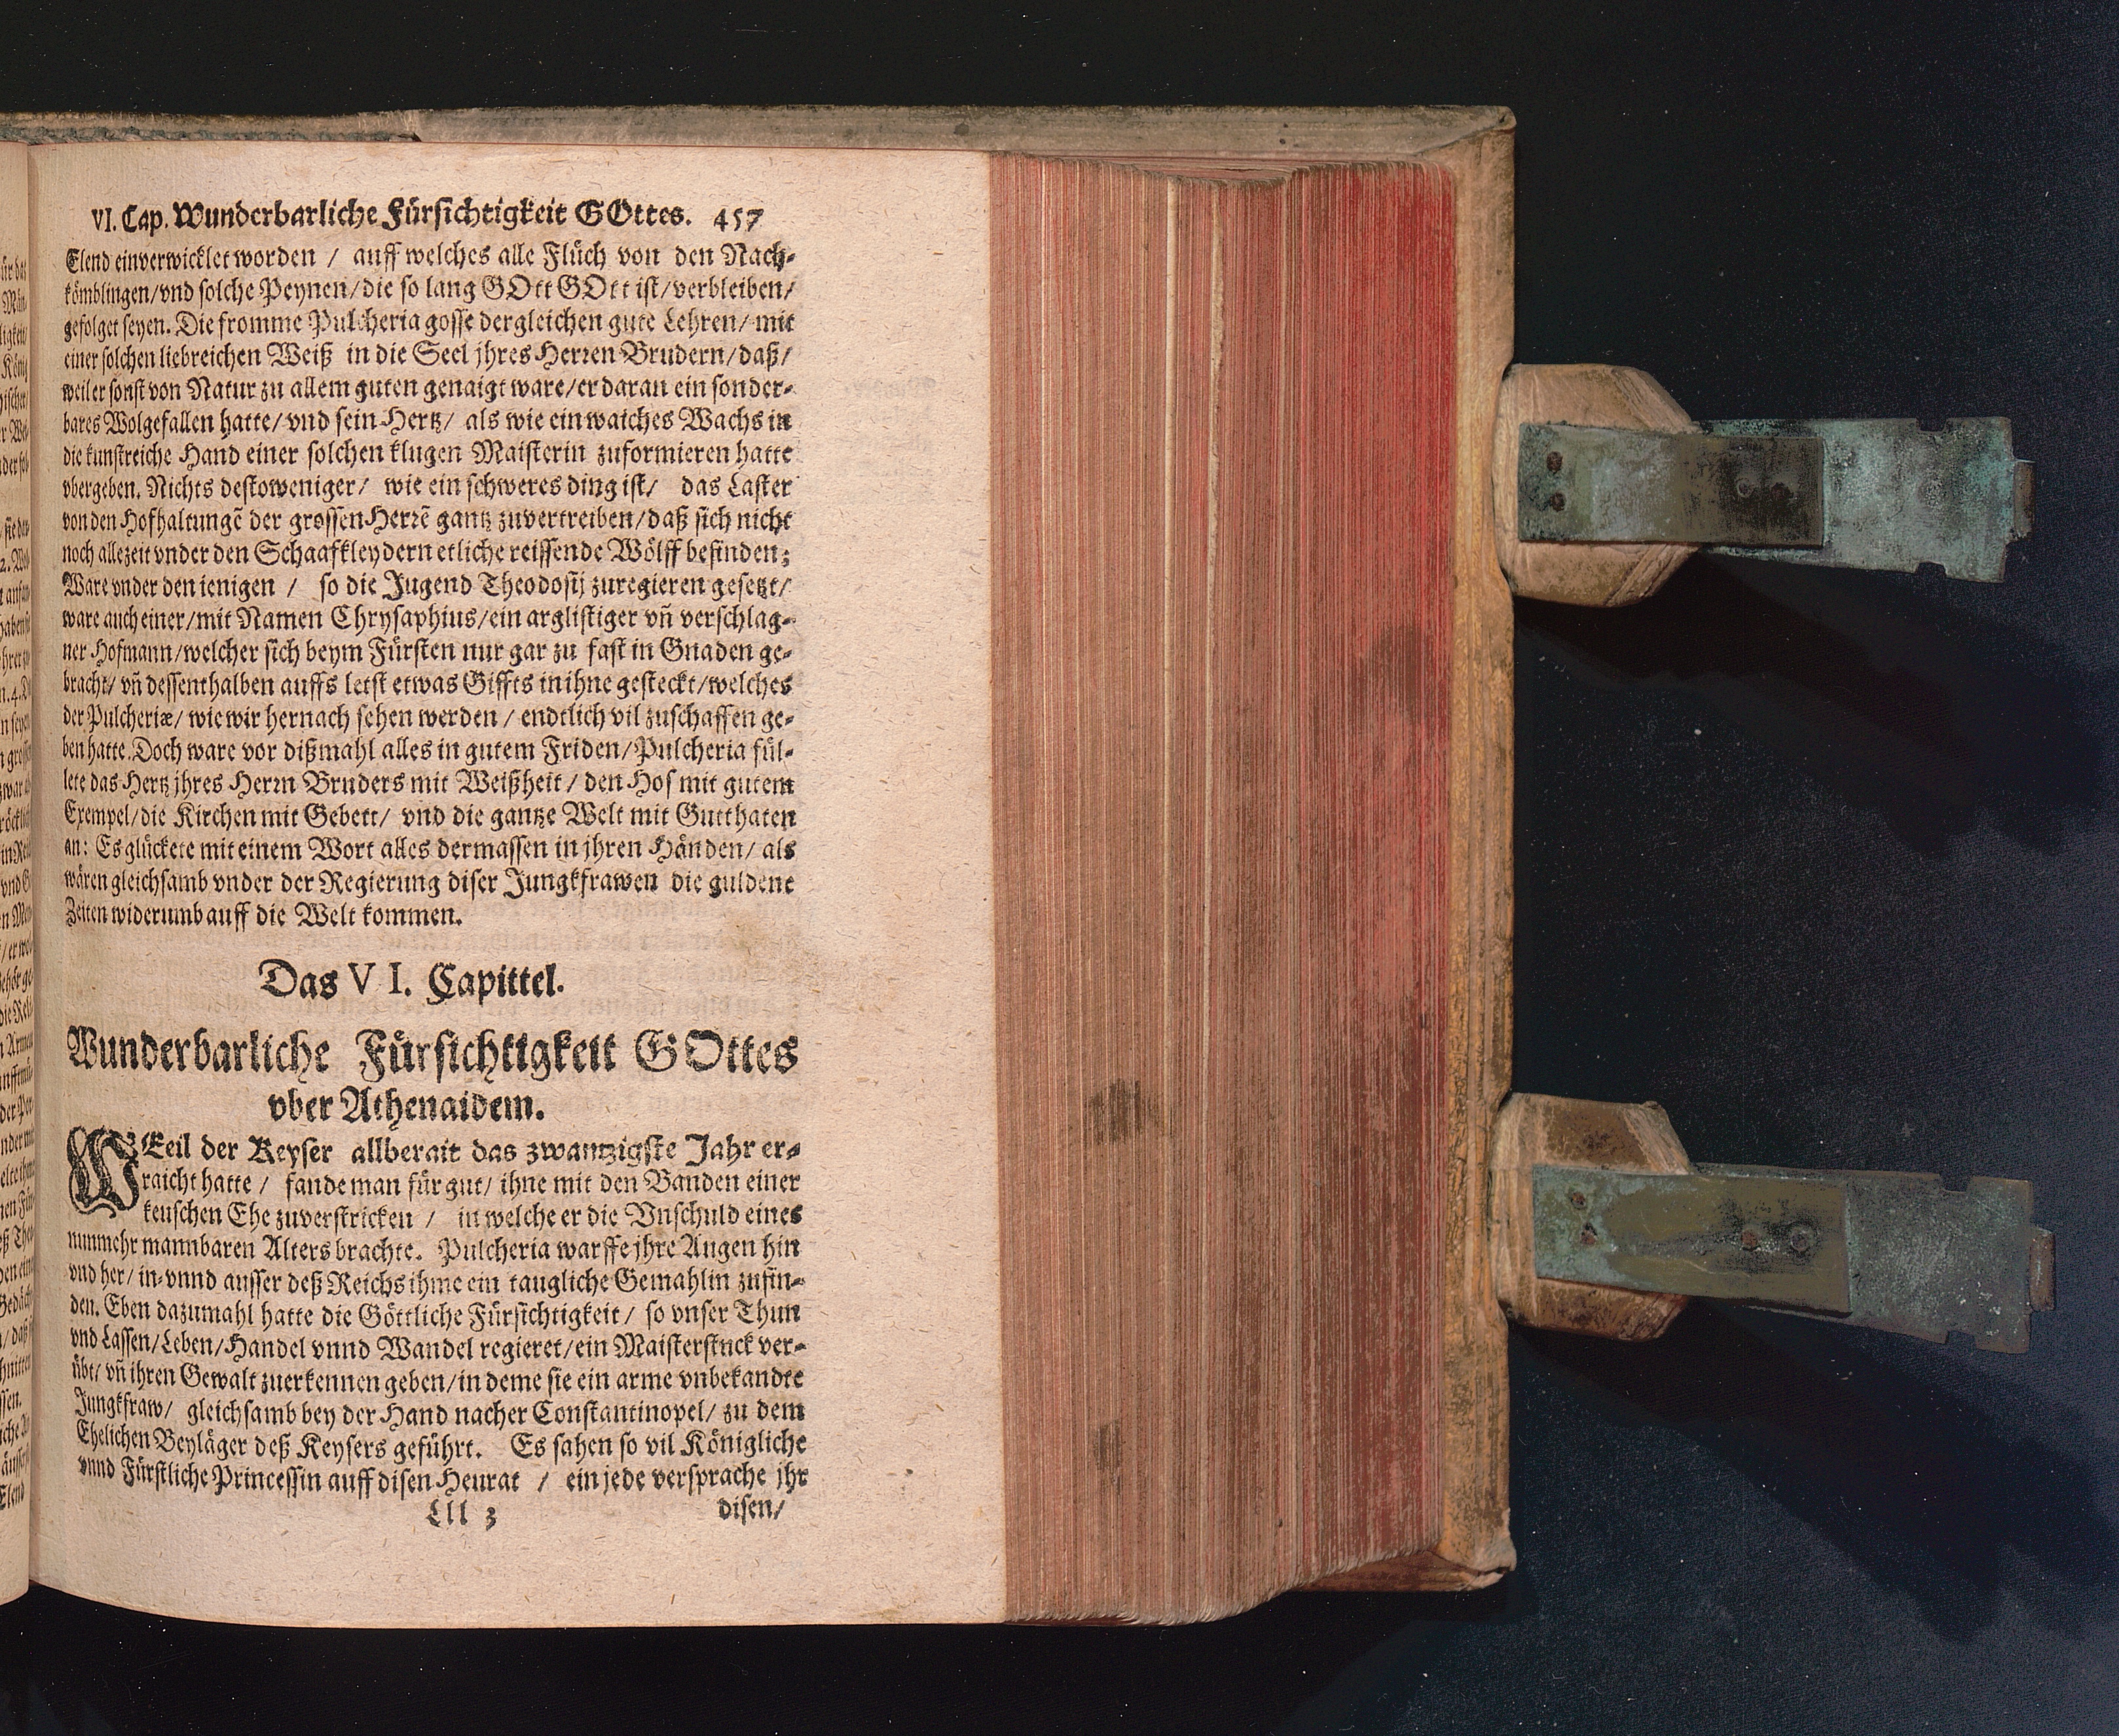 VI. Cap. Wunderbarliche Fürsichtigkeit GOttes. 457
Elend einverwicklet worden / auff welches alle Flüch von den Nach-
kömblingen/vnd solche Peynen/die so lang GOtt GOtt ist/verbleiben/
gefolget seyen. Die fromme Pulcheria gosse dergleichen gute Lehren/ mit
einer solchen liebreichen Weiß in die Seel jhres Herren Brudern/daß/
weil er sonst von Natur zu allem guten genaigt ware/er daran ein sonder-
bares Wolgefallen hatte/ vnd sein Hertz/ als wie ein waiches Wachs in
die kunstreiche Hand einer solchen klugen Maisterin zuformieren hatte
vbergeben. Nichts destoweniger/ wie ein schweres ding ist/ das Laster
von den Hofhaltungẽ der grossen Herrẽ gantz zuvertreiben/daß sich nicht
noch allezeit vnder den Schaafkleydern etliche reissende Wölff befinden;
Ware vnder den ienigen / so die Jugend Theodosij zuregieren gesetzt/
ware auch einer/mit Namen Chrysaphius/ein arglistiger vñ verschlag-
ner Hofmann/welcher sich beym Fürsten nur gar zu fast in Gnaden ge-
bracht/ vñ dessenthalben auffs letst etwas Giffts in ihne gesteckt/welches
der Pulcheriæ/ wie wir hernach sehen werden / endtlich vil zuschaffen ge-
ben hatte. Doch ware vor dißmahl alles in gutem Friden/Pulcheria fül-
lete das Hertz jhres Herrn Bruders mit Weißheit / den Hof mit gutem
Exempel/die Kirchen mit Gebett/ vnd die gantze Welt mit Gutthaten
an: Es glückete mit einem Wort alles dermassen in jhren Händen/ als
wären gleichsamb vnder der Regierung diser Jungkfrawen die guldene
Zeiten widerumb auff die Welt kommen.
Das VI. Capittel.
Wunderbarliche Fürsichtigkeit GOttes
vber Athenaidem.
WEeil der Keyser allberait das zwantzigste Jahr er-
raicht hatte / fande man für gut/ ihne mit den Banden einer
keuschen Ehe zuverstricken / in welche er die Vnschuld eines
nunmehr mannbaren Alters brachte. Pulcheria warffe jhre Augen hin
vnd her/ in-vnnd ausser deß Reichs ihme ein taugliche Gemahlin zufin-
den. Eben dazumahl hatte die Göttliche Fürsichtigkeit/ so vnser Thun
vnd Lassen/Leben/Handel vnnd Wandel regieret/ein Maisterstuck ver-
übt/ vñ ihren Gewalt zuerkennen geben/in deme sie ein arme vnbekandte
Jungkfraw/ gleichsamb bey der Hand nacher Constantinopel/ zu dem
Ehelichen Beyläger deß Keysers geführt. Es sahen so vil Königliche
vnnd Fürstliche Princessin auff disen Heurat / ein jede versprache jhr
Lll 3 disen/